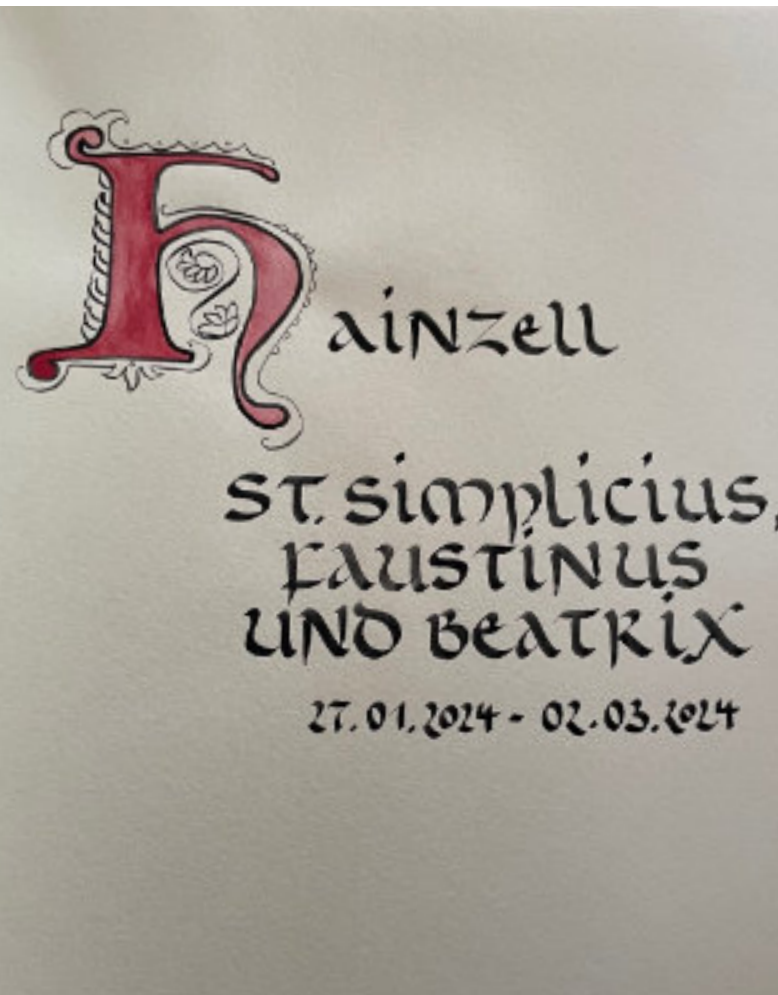 Hainzell
St. Simplicius,
Faustinus
und Beatrix
27.01.2024 - 02.03.2024